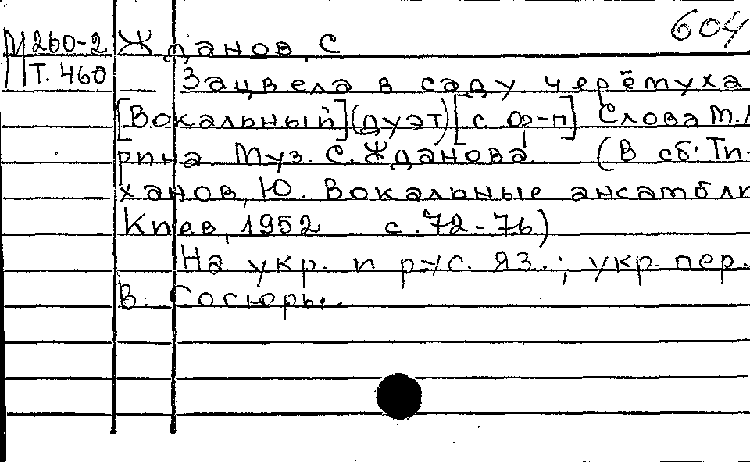 604
М260-2 Жданов, С
Т. 460 Зацвела в саду черёмуха
[Вокальный] (дуэт) [с ф-п] Слова М.
рина Муз. С. Жданова. (В сб: Ти-
ханов, Ю. Вокальные ансамбли
Киев, 1952 с. 72-76)
На укр. и рус. яз.; укр пер.
В. Сосюры.